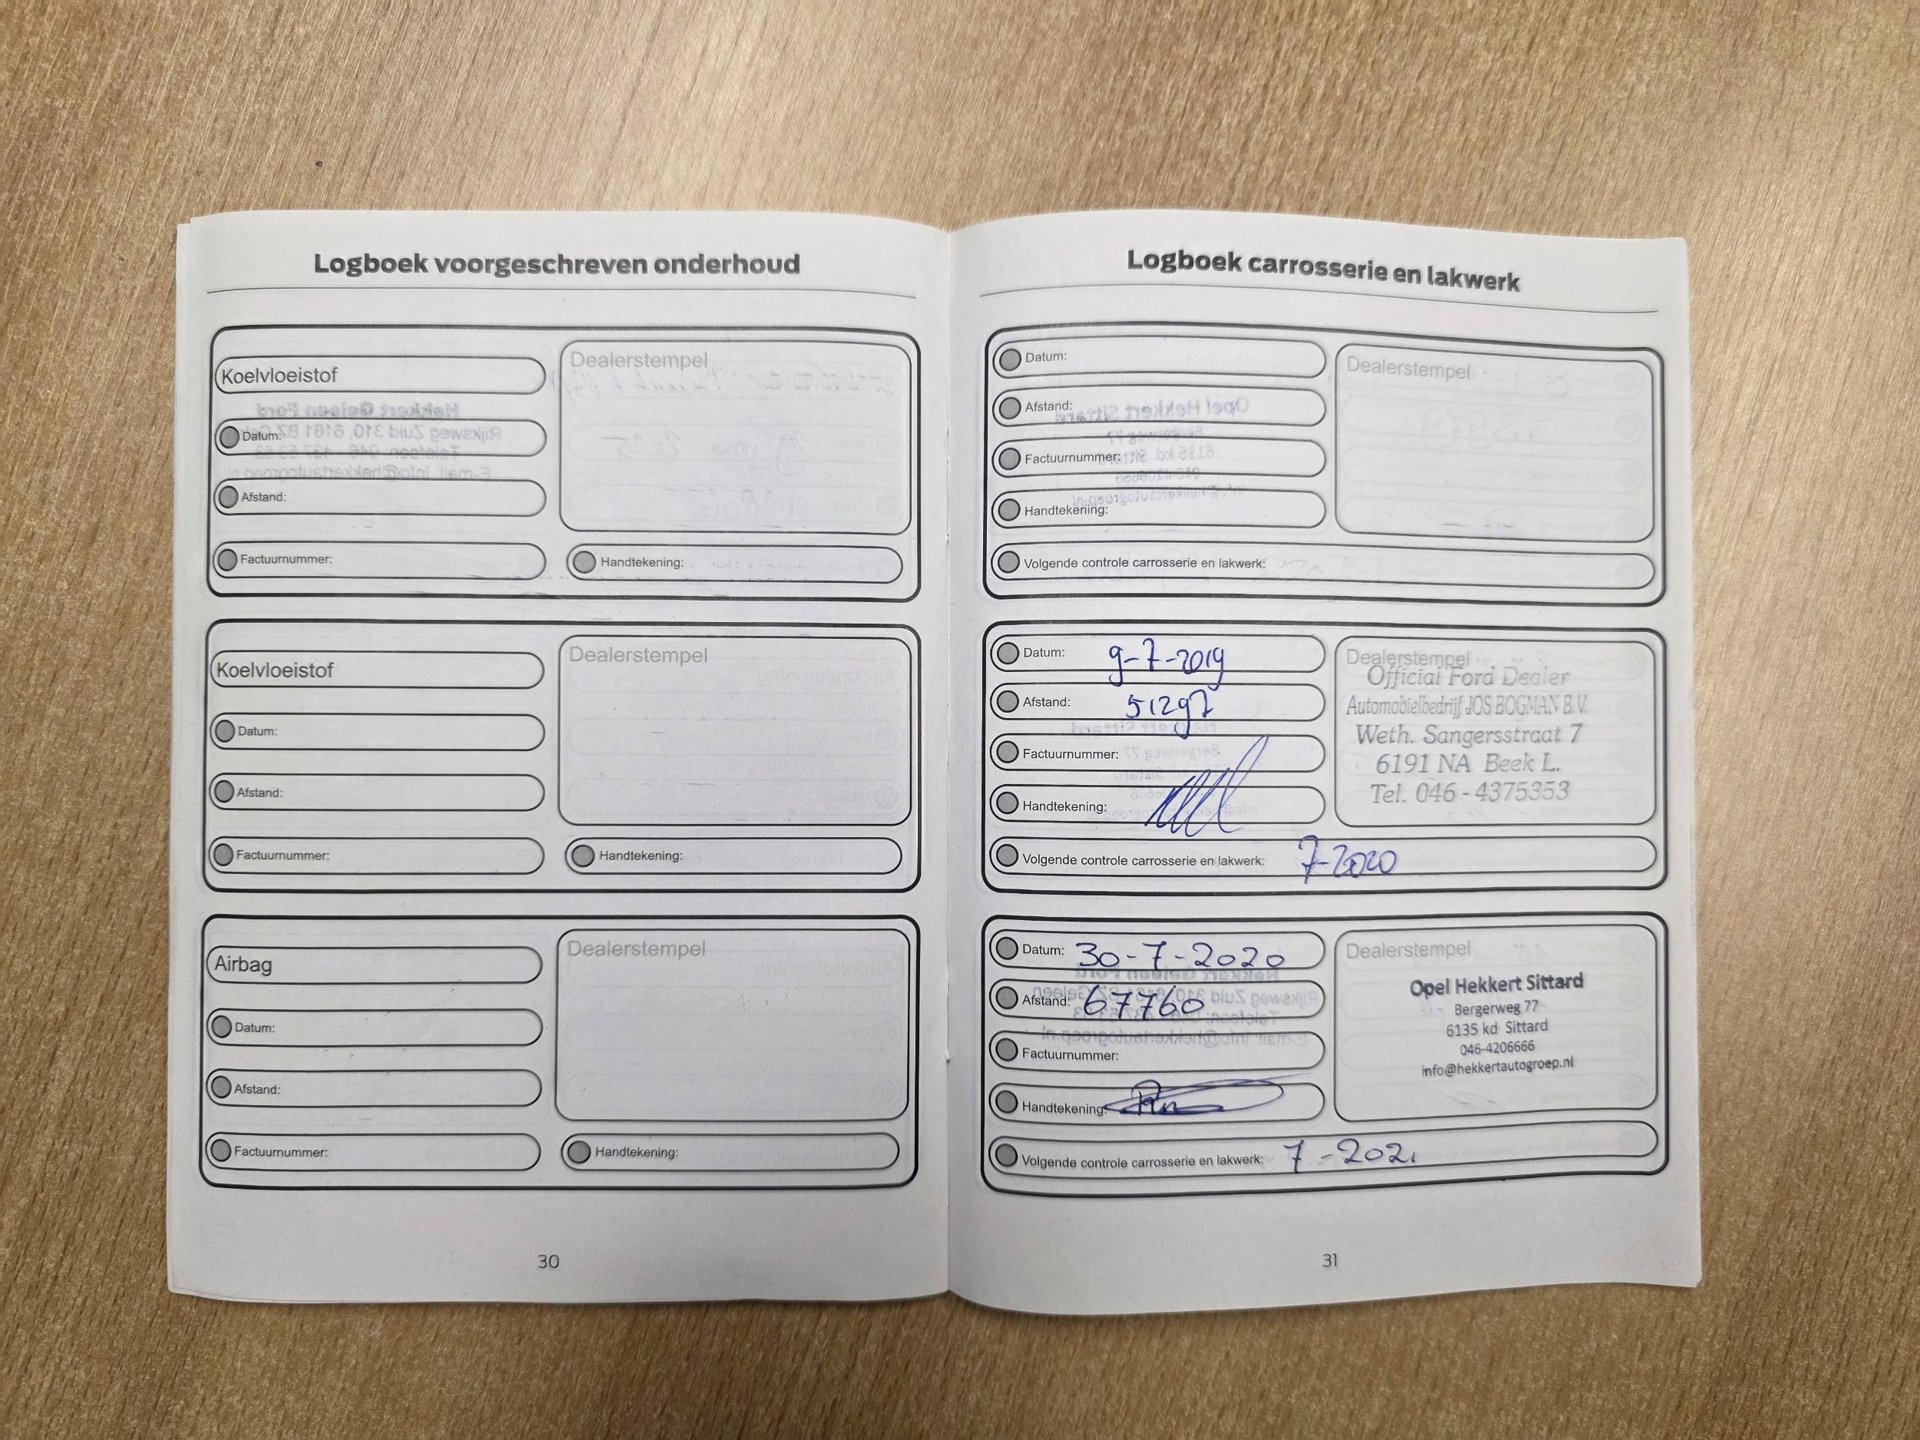 Logboek voorgeschreven onderhoud
Koelvloeistof
Datum:
Afstand:
Factuurnummer:
Dealerstempel
Handtekening:
Koelvloeistof
Datum:
Afstand:
Factuurnummer:
Dealerstempel
Handtekening:
Airbag
Datum:
Afstand:
Factuurnummer:
Dealerstempel
Handtekening:
30
Logboek carrosserie en lakwerk
Datum:
Afstand:
Factuurnummer:
Handtekening:
Dealerstempel
Volgende controle carrosserie en lakwerk:
Datum: 9-7-2019
Afstand: 51297
Factuurnummer:
Handtekening:
Dealerstempel
Official Ford Dealer
Automobielbedrijf JOS BOGMAN B.V.
Weth. Sangersstraat 7
6191 NA Beek L.
Tel. 046 - 4375353
Volgende controle carrosserie en lakwerk: 7-2020
Datum: 30-7-2020
Afstand: 67760
Factuurnummer:
Handtekening:
Dealerstempel
Opel Hekkert Sittard
Bergerweg 77
6135 kd Sittard
046-4206666
info@hekkertautogroep.nl
Volgende controle carrosserie en lakwerk: 7-2021
31